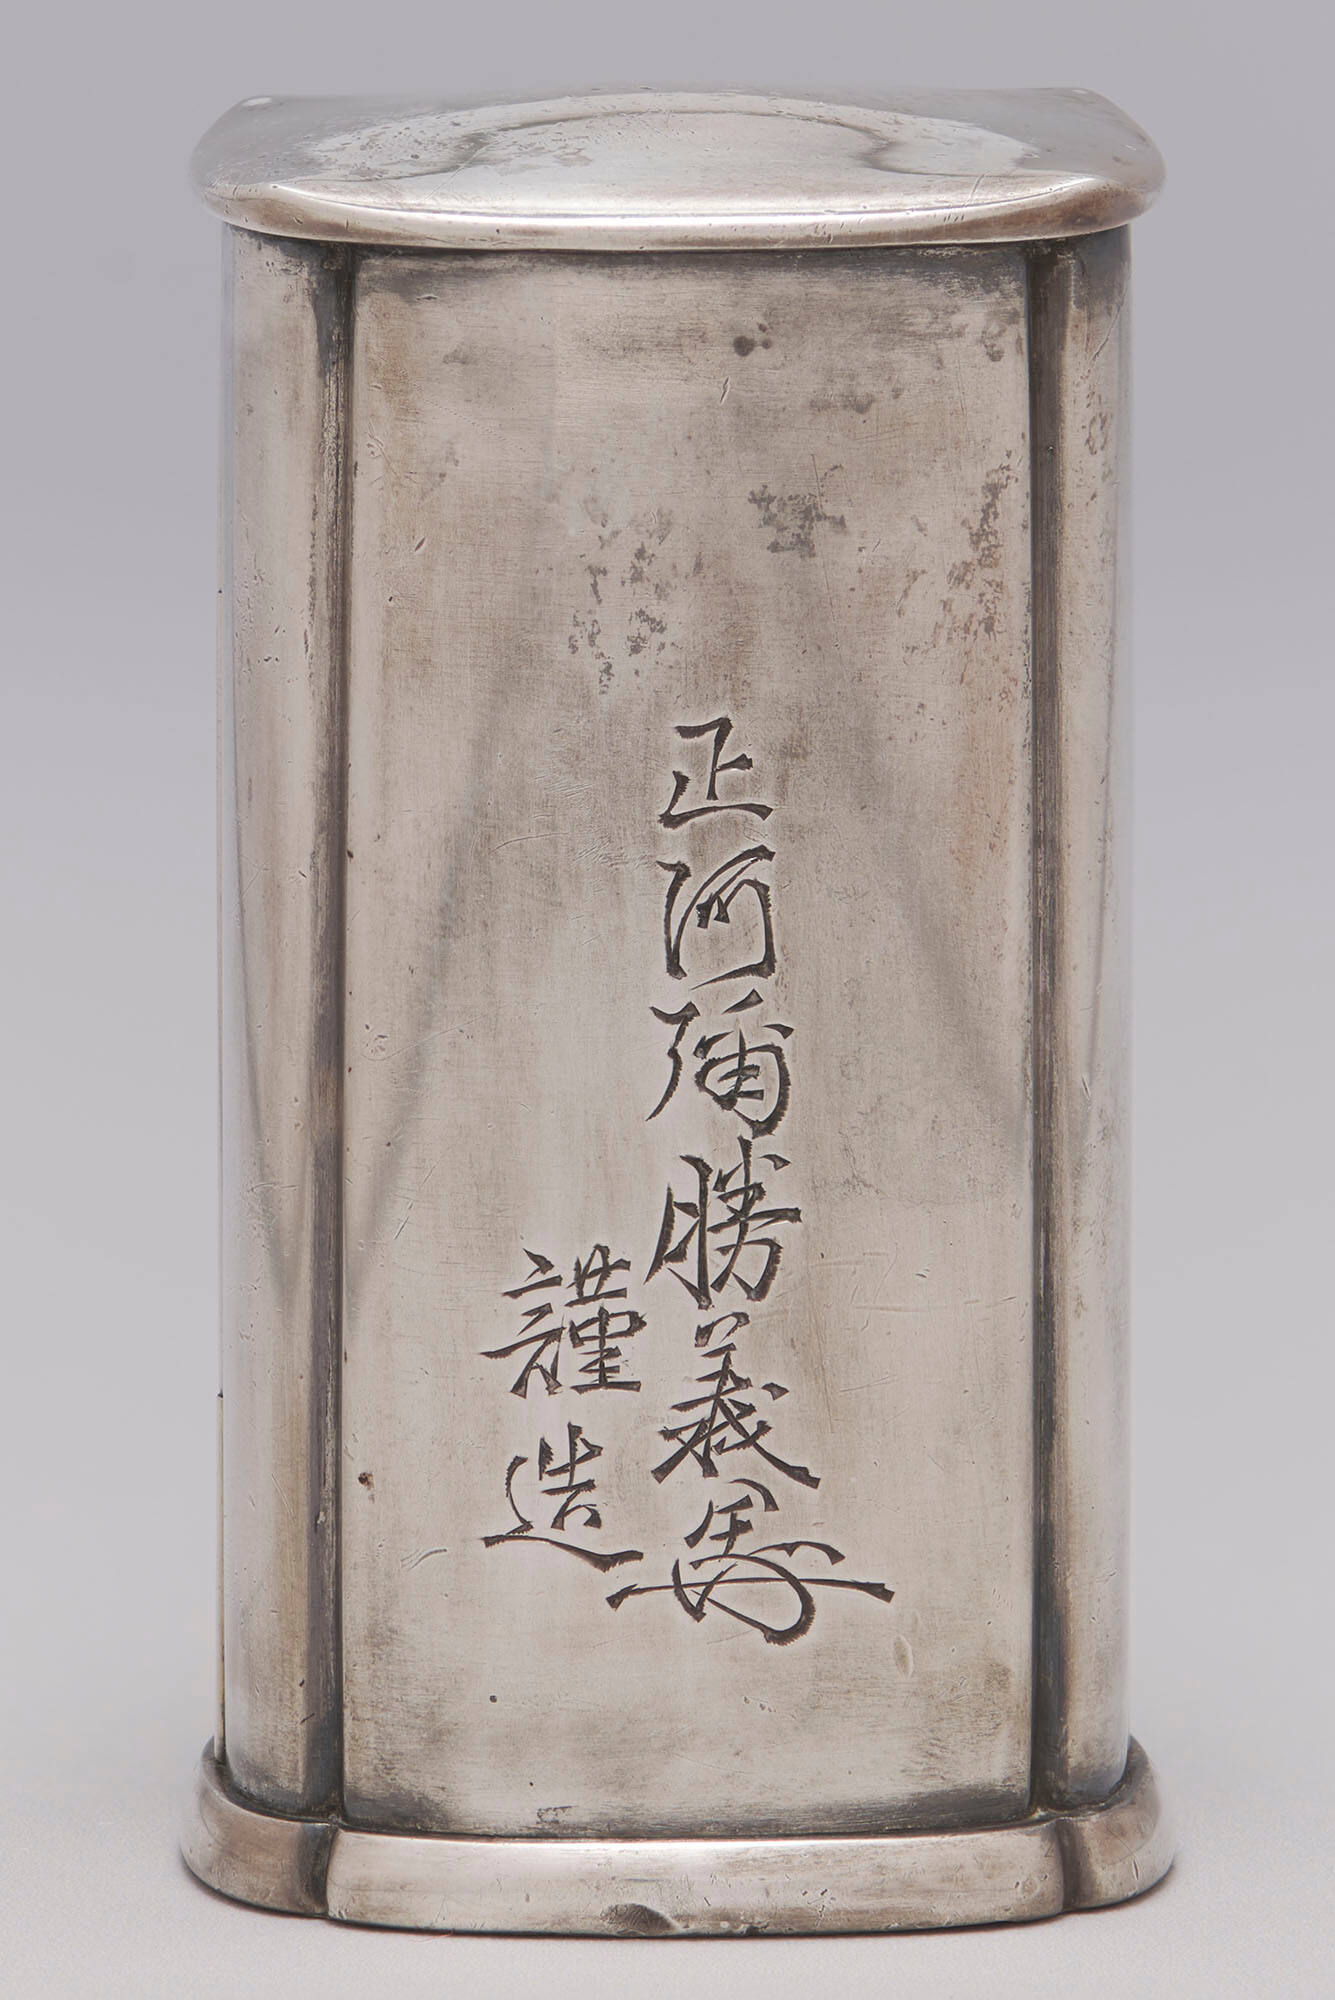 正阿彌勝義
謹造